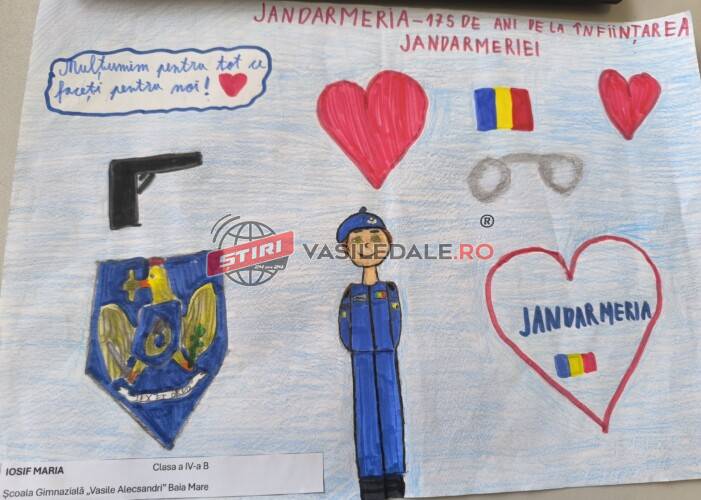 JANDARMERIA-175 DE ANI DE LA ÎNFIINȚAREA
JANDARMERIEI
Mulțumim pentru tot ce
faceți pentru noi!
STIRI
24 ore 24
VASILEDALE.RO
®
JANDARMERIA
LEX ET ORDO
IOSIF MARIA
Clasa a IV-a B
Școala Gimnazială „Vasile Alecsandri” Baia Mare